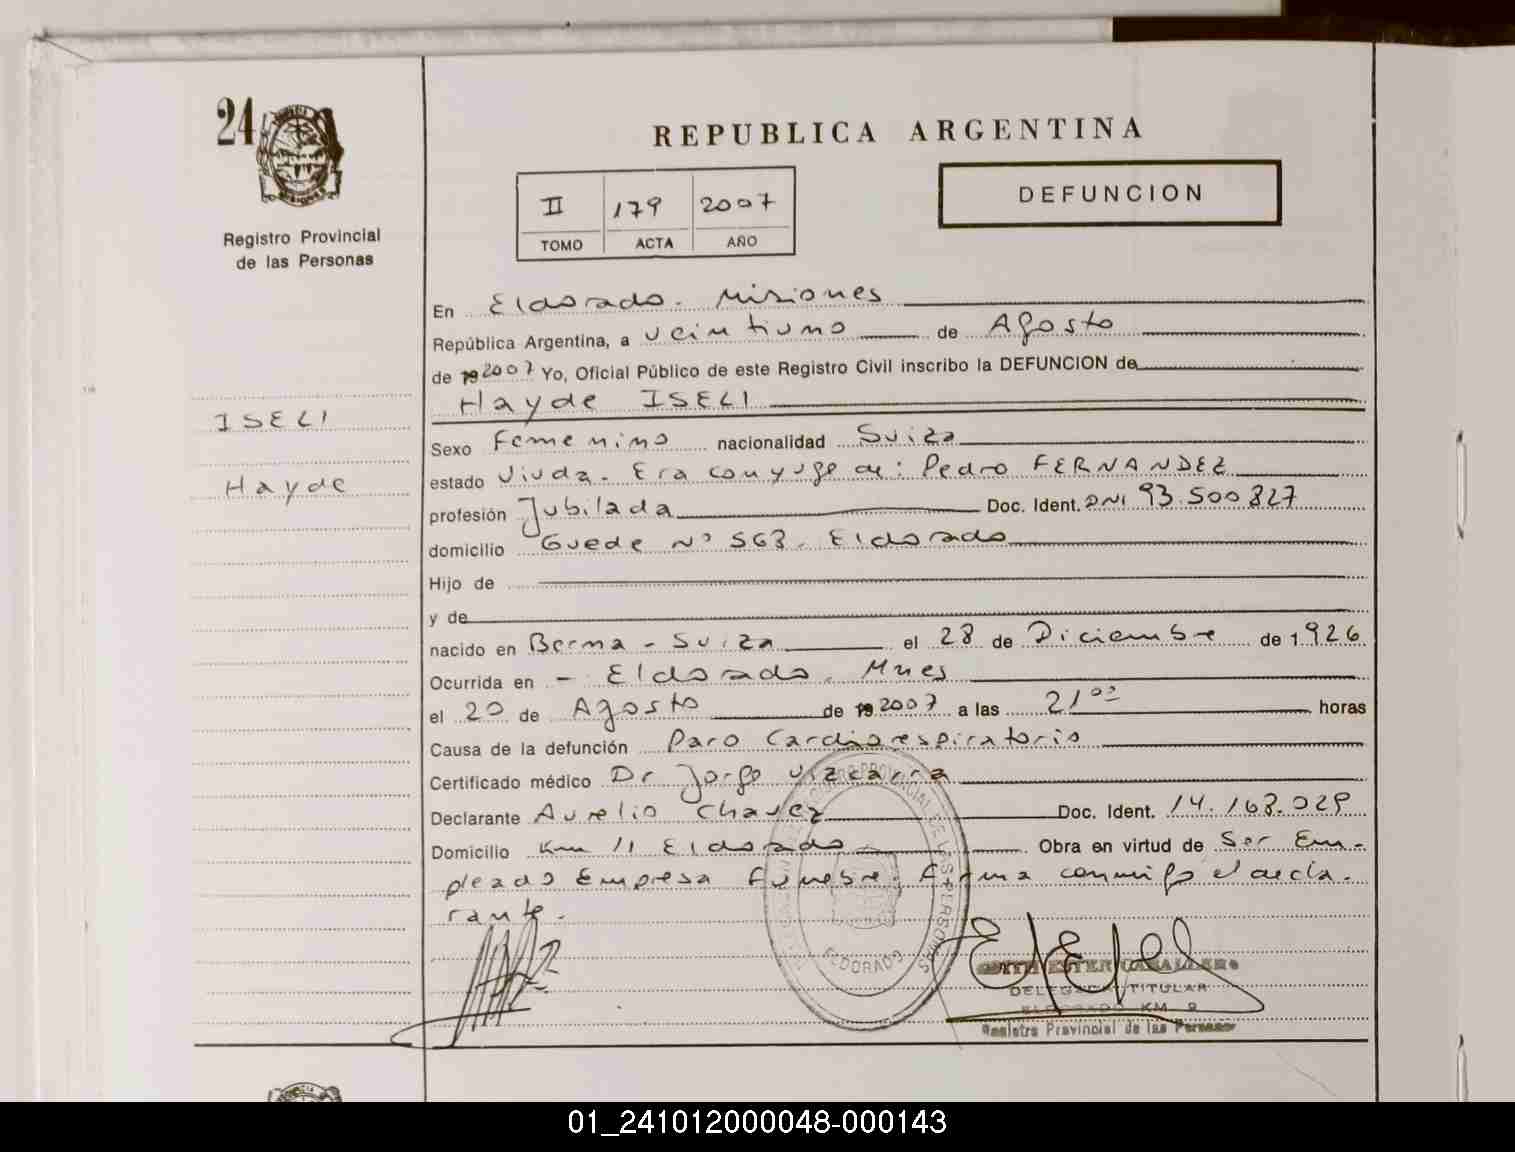 24
REPUBLICA ARGENTINA
II 179 2007
TOMO ACTA AÑO
DEFUNCION
Registro Provincial
de las Personas
ISELI
Hayde
En Eldorado. Misiones
República Argentina, a veintiuno de Agosto
de 192007 Yo, Oficial Público de este Registro Civil inscribo la DEFUNCION de
Hayde ISELI
Sexo Femenino nacionalidad Suiza
estado Viuda. Era conyuge de: Pedro FERNANDEZ
profesión Jubilada Doc. Ident. DNI 93.500827
domicilio Guede Nº 563. Eldorado
Hijo de
y de
nacido en Berna - Suiza el 28 de Diciembre de 1.926
Ocurrida en - Eldorado. Mnes
el 20 de Agosto de 192007 a las 21ºº horas
Causa de la defunción Paro Cardiorespiratorio
Certificado médico Dr Jorge Vizcarra
Declarante Aurelio Chavez Doc. Ident. 14.168.029
Domicilio Km 11 Eldorado Obra en virtud de Ser Em-
pleado Empresa Funebre Firma conmigo el decla-
rante.
REGISTRO PROVINCIAL DE LAS PERSONAS
ELDORADO
EDITH ESTER CABALLERO
DELEGADA TITULAR
ELDORADO KM. 9
Registro Provincial de las Personas
01_241012000048-000143